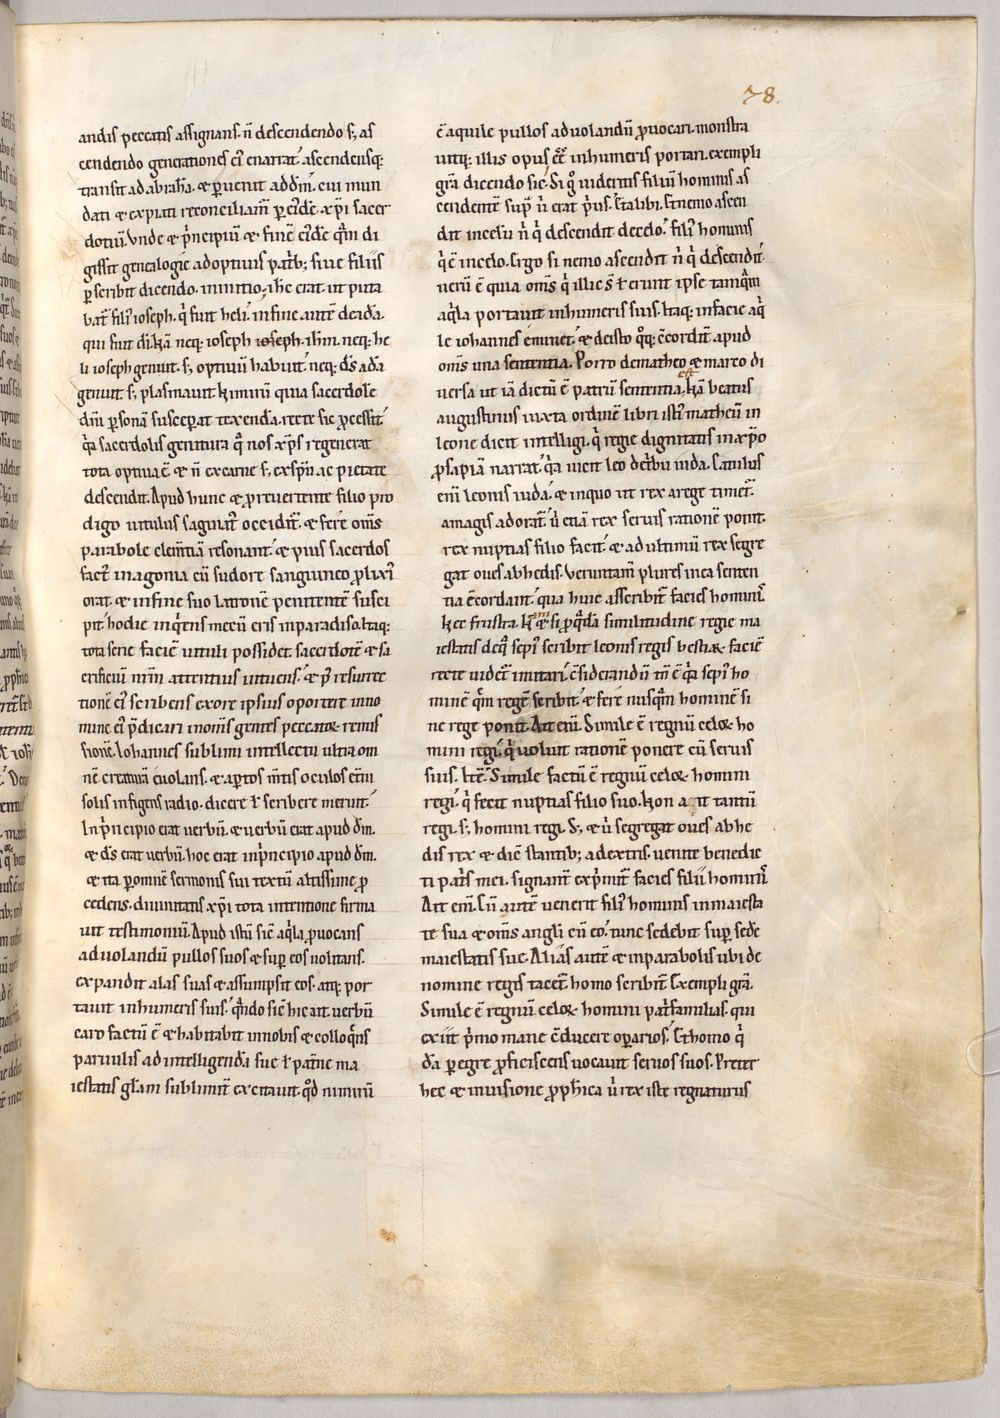 78.
andis peccatis assignans. n̄ descendendo s; as
cendendo generationes ei᾽ enarrat᾽. ascendensq;
transit ad abrahā. & peruenit ad dm̄. cui mun
dati & expiati reconciliam̄. per ei᾽dē xp̄i sacer
dotiū. Vnde & p̄ncipiū & finē ei᾽dē
gessit genealogie adoptiuis patrib; siue filiis
pscribit dicendo. in initio. ih̄c erat ut puta
bat᾽ fili᾽ ioseph. q̄ fuit heli. in fine autē de adā.
qui fuit di᾽. Nā neq; ioseph ioseph. ihm̄. neq; he
li ioseph genuit. s; optiuū habuit. neq; ds̄ adā
genuit s; plasmauit Nimirū quia sacerdotē
dm̄ psonā susceperat texendā. recte sic pcessit᾽
q̄a sacerdotis genitura q̄ nos xp̄s regenerat
tota optiua ē & n̄ ex carne s; ex spū ac pietate
descendit. Apud hunc & p reuertente filio pro
digo uitulus saginat᾽ occidit᾽. & fere om̄s
parabole clem̄tiā resonant. & pius sacerdos
fact᾽ in agonia cū sudore sanguineo plixi᾽
orat. & in fine suo latronē penitentē susci
pit. hodie inq̄ens mecū eris in paradiso. Itaq;
tota serie faciē uituli possidet. sacerdotē & sa
crificiū nr̄m attentius intuens. & p᾽ resurrec
tionē ei᾽ scribens ex ore ipsius oportere in no
mine ei᾽ p̄dicari in om̄s gentes peccatoꝝ remis
sionē. Iohannes sublimi intellectu ultra om
nē creaturā euolans. & aptos m̄tis oculos et̄ni
solis infigens radio. dicere ł scribere meruit.
In p̄ncipio erat uerbū. & uerbū erat apud dm̄.
& ds̄ erat uerbū. hoc erat in p̄ncipio apud dm̄.
& ita p omnē sermonis sui textū altissime p
cedens. diuinitatis xp̄i tota intentione firma
uit testimoniū. Apud istū sic aq̄la puocans
ad uolandū pullos suos & sup eos uolitans.
expandit alas suas & assumpsit eos. atq; por
tauit in humeris suis. q̄ndo sic hic ait uerbū
caro factū ē & habitabit in nobis & colloq̄ns
paruulis ad intelligendā sue ł pat̄ne ma
iestatis gl̄am sublimit᾽ excitauit. qd̄ nimirū
ē aquile pullos ad uolandū puocari. monstra
uitq; illis opus ēē in humeris portari. exempli
grā dicendo sic. Si g̊ uideritis filiū hominis as
cendentē sup᾽ ū erat p᾽us. Et alibi. Et nemo ascen
dit in celū n̄ q̄ descendit de celo. fili᾽ hominis
q̄ ē in celo. Ergo si nemo ascendit n̄ q̄ descendit.
uerū ē quia om̄s q̄ illic s̄ ł erunt ipse tamq̄m
aq̄la portauit in humeris suis. Itaq; in facie aq̄
le iohannes eminet. & de isto q̊q; c̄cordit᾽. apud
om̄s una sententia. Porro de matheo & marco di
uersa ut iā dictū ē patrū sententia est. Nā beatus
augustinus iuxta ordinē libri isti᾽ matheū in
leone dicit intelligi. q̄ regie dignitatis in xp̄o
psapiā narrat. q̄a uicit leo de t̄bu iuda. Catulus
eni᾽ leonis iuda. & in quo ut rex a rege timet᾽.
a magis adorat᾽. ū etiā rex seruis rationē ponit.
rex nuptias filio facit. & ad ultimū rex segre
gat oues ab hedis. Veruntam̄ plures in ea senten
tia c̄cordant. qua huic asscribit᾽ facies hominis.
Nec frustra. Nam & si p q̄dā similitudine regie ma
iestatis de q̄ sepi᾽ scribit leonis regis bestiaꝝ faciē
recte uidet᾽ imitari. c̄siderandū tn̄ ē q̄a sepi᾽ ho
minē q̄m regē scribit. & fere nusq̄m hominē si
ne rege ponit. Ait eni᾽. Simile ē regnū celoꝝ ho
mini regi. q̄ uoluit rationē ponere cū seruis
suis. Itē. Simile factū ē regnū celoꝝ homini
regi. q̄ fecit nuptias filio suo. Non ait tantū
regi. s; homini regi. S; & ū segregat oues ab he
dis rex & dic stantib; a dextris. uenite benedic
ti patris mei. signant᾽ exp̄mit᾽ facies filii hominis.
Ait eni᾽. Cū autē uenerit fili᾽ hominis in maiesta
te sua & om̄s angli cū eo. tunc sedebit sup sedē
maiestatis sue. Alias autē & in parabolis ubi de
nomine regis tacet᾽ homo scribit᾽. Exempli grā.
Simile ē regnū celoꝝ homini patrifamilias. qui
exiit p᾽mo mane c̄ducere operarios. Et homo q̄
dā peregre pficiscens uocauit seruos suos. Preter
hec & in uisione pphica ū rex iste regnaturus